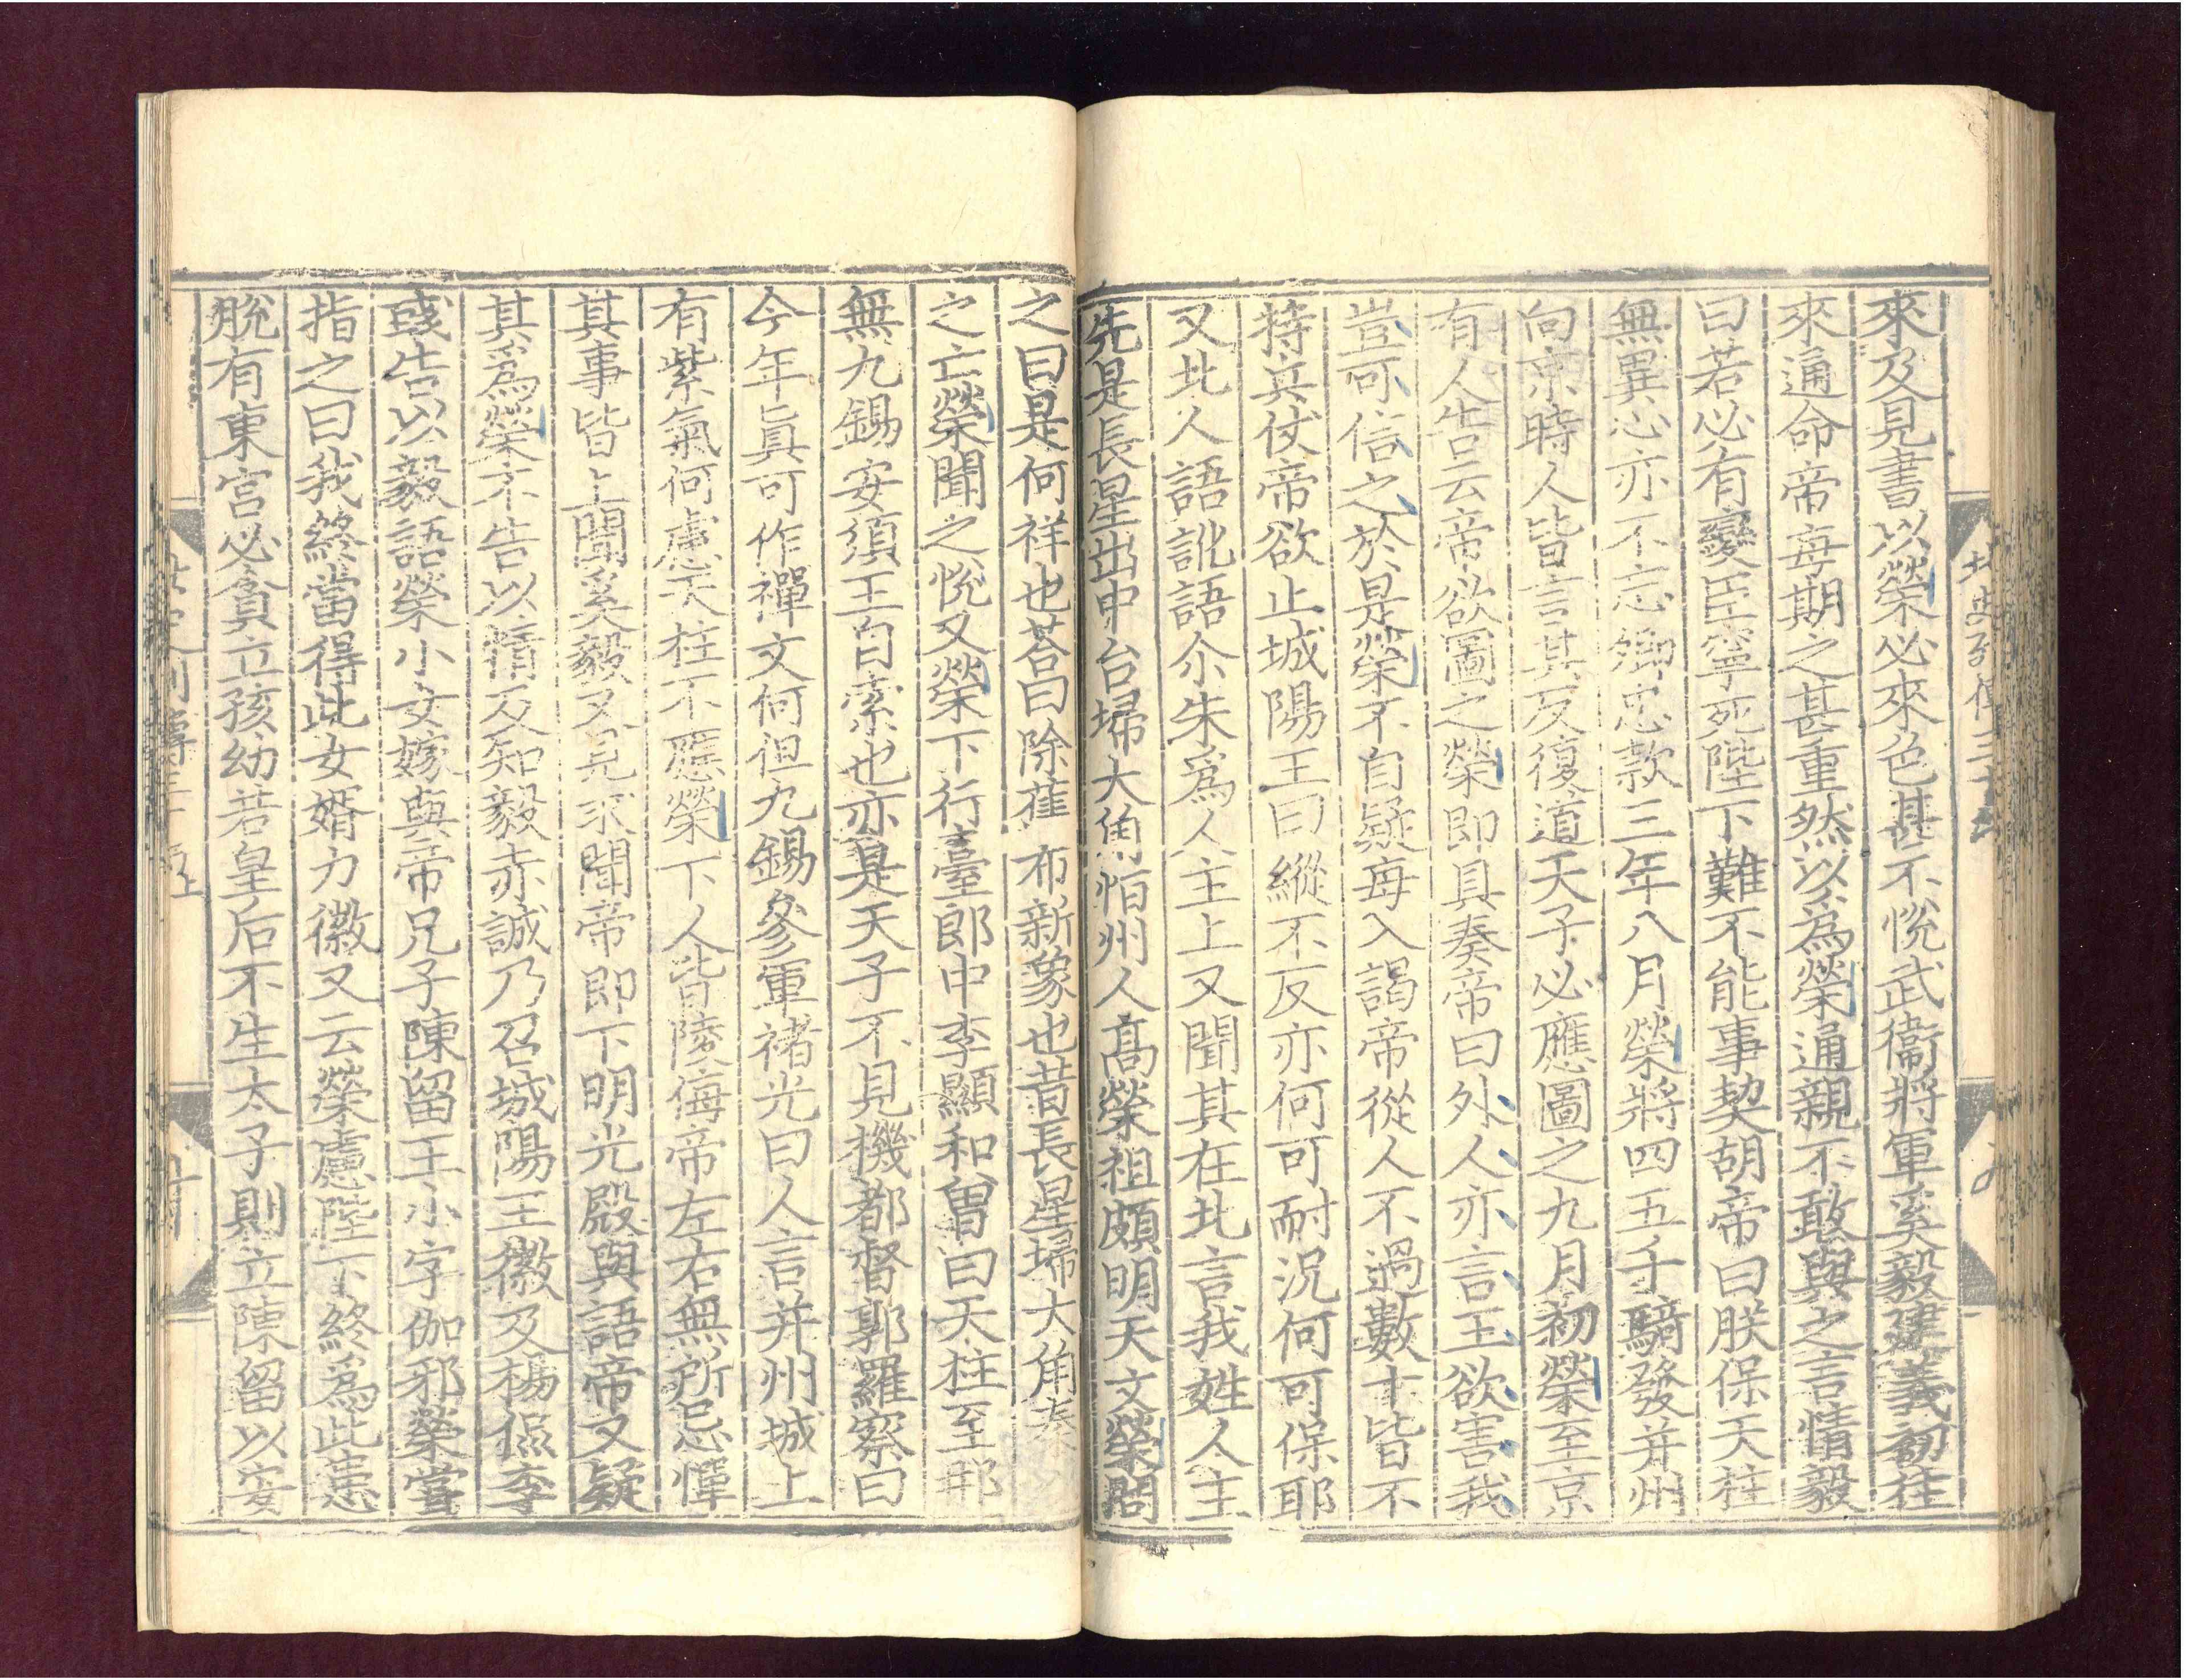 來及見書以榮必來色甚不悅武衞將軍奚毅建義初往
來通命帝每期之甚重然以為榮通親不敢與之言情毅
曰若必有變臣寧死陛下難不能事契胡帝曰朕保天柱
無異心亦不忘卿忠款三年八月榮將四五千騎發并州
向京時人皆言其反復道天子必應圖之九月初榮至京
有人告云帝欲圖之榮即具奏帝曰外人亦言王欲害我
豈可信之於是榮不自疑每入謁帝從人不過數十皆不
持兵仗帝欲止城陽王曰縱不反亦何可耐況何可保耶
又北人語訛語尒朱爲人主上又聞其在北言我姓人主
先是長星出中台掃大角恒州人高榮祖頗明天文榮問
之曰是何祥也荅曰除舊布新象也昔長星掃大角秦
之亡榮聞之悅又榮下行臺郎中李顯和曾曰天柱至那
無九錫安須王自索也亦是天子不見機都督郭羅察曰
今年眞可作禪文何但九錫參軍褚光曰人言并州城上
有紫氣何慮天柱不應榮下人皆陵侮帝左右無所忌憚
其事皆上聞奚毅又見求聞帝即下明光殿與語帝又疑
其爲榮不告以情及知毅赤誠乃召城陽王徽及楊侃李
彧告以毅語榮小女嫁與帝兄子陳留王小字伽邪榮嘗
指之曰我終當得此女婿力徽又云榮慮陛下終爲此患
脫有東宮必貪立孩幼若皇后不生太子則立陳留以安